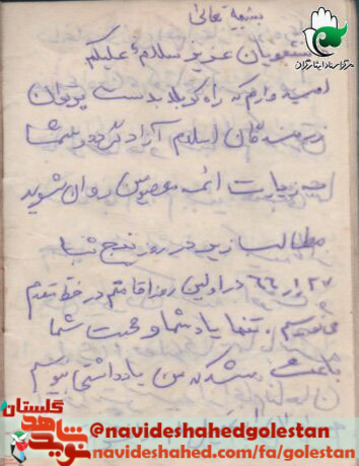 بسمه تعالی
عزیز سلام علیکم
امیدوارم که راه کربلا بدست پرتوان
رزمندگان اسلام آزاد گردد و شما
به زیارت ائمه معصومین روان شوید
مطالب زیر در روز پنج شنبا
در اولین روز اقامتم در خط مقدم
تنها یاد شما و محبت شما
باعث شد که من یادداشتی بنویسم
گلستان
نوید شاهد
@navideshahedgolestan
navideshahed.com/fa/golestan